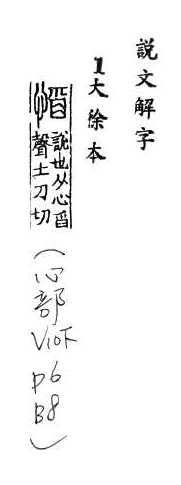 說文解字
1大徐本
慆說也从心舀
聲土刀切
(心部 V10下 P6 B8)